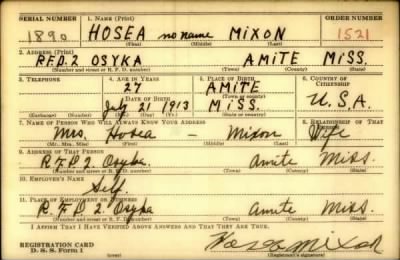 SERIAL NUMBER 1. NAME (Print) ORDER NUMBER
1890 HOSEA no name MIXON 1521
(First) (Middle) (Last)
2. ADDRESS (Print)
RFD.2 OSYKA AMITE MISS.
(Number and street or R. F. D. number) (Town) (County) (State)
3. TELEPHONE 4. AGE IN YEARS 5. PLACE OF BIRTH 6. COUNTRY OF CITIZENSHIP
27 AMITE
DATE OF BIRTH
July 21 1913 MISS. U.S.A.
(Exchange) (Number) (Mo.) (Day) (Yr.) (State or country)
7. NAME OF PERSON WHO WILL ALWAYS KNOW YOUR ADDRESS 8. RELATIONSHIP OF THAT PERSON
Mrs. Hosea — Mixon Wife
(Mr., Mrs., Miss) (First) (Middle) (Last)
9. ADDRESS OF THAT PERSON
R.F.D 2 Osyka. Amite Miss.
(Number and street or R. F. D. number) (Town) (County) (State)
10. EMPLOYER'S NAME
Self.
11. PLACE OF EMPLOYMENT OR BUSINESS
R.F.D 2 Osyka Amite Miss.
(Number and street or R. F. D. number) (Town) (County) (State)
I AFFIRM THAT I HAVE VERIFIED ABOVE ANSWERS AND THAT THEY ARE TRUE.
REGISTRATION CARD
D. S. S. Form 1 Hosea Mixon
(Registrant's signature)